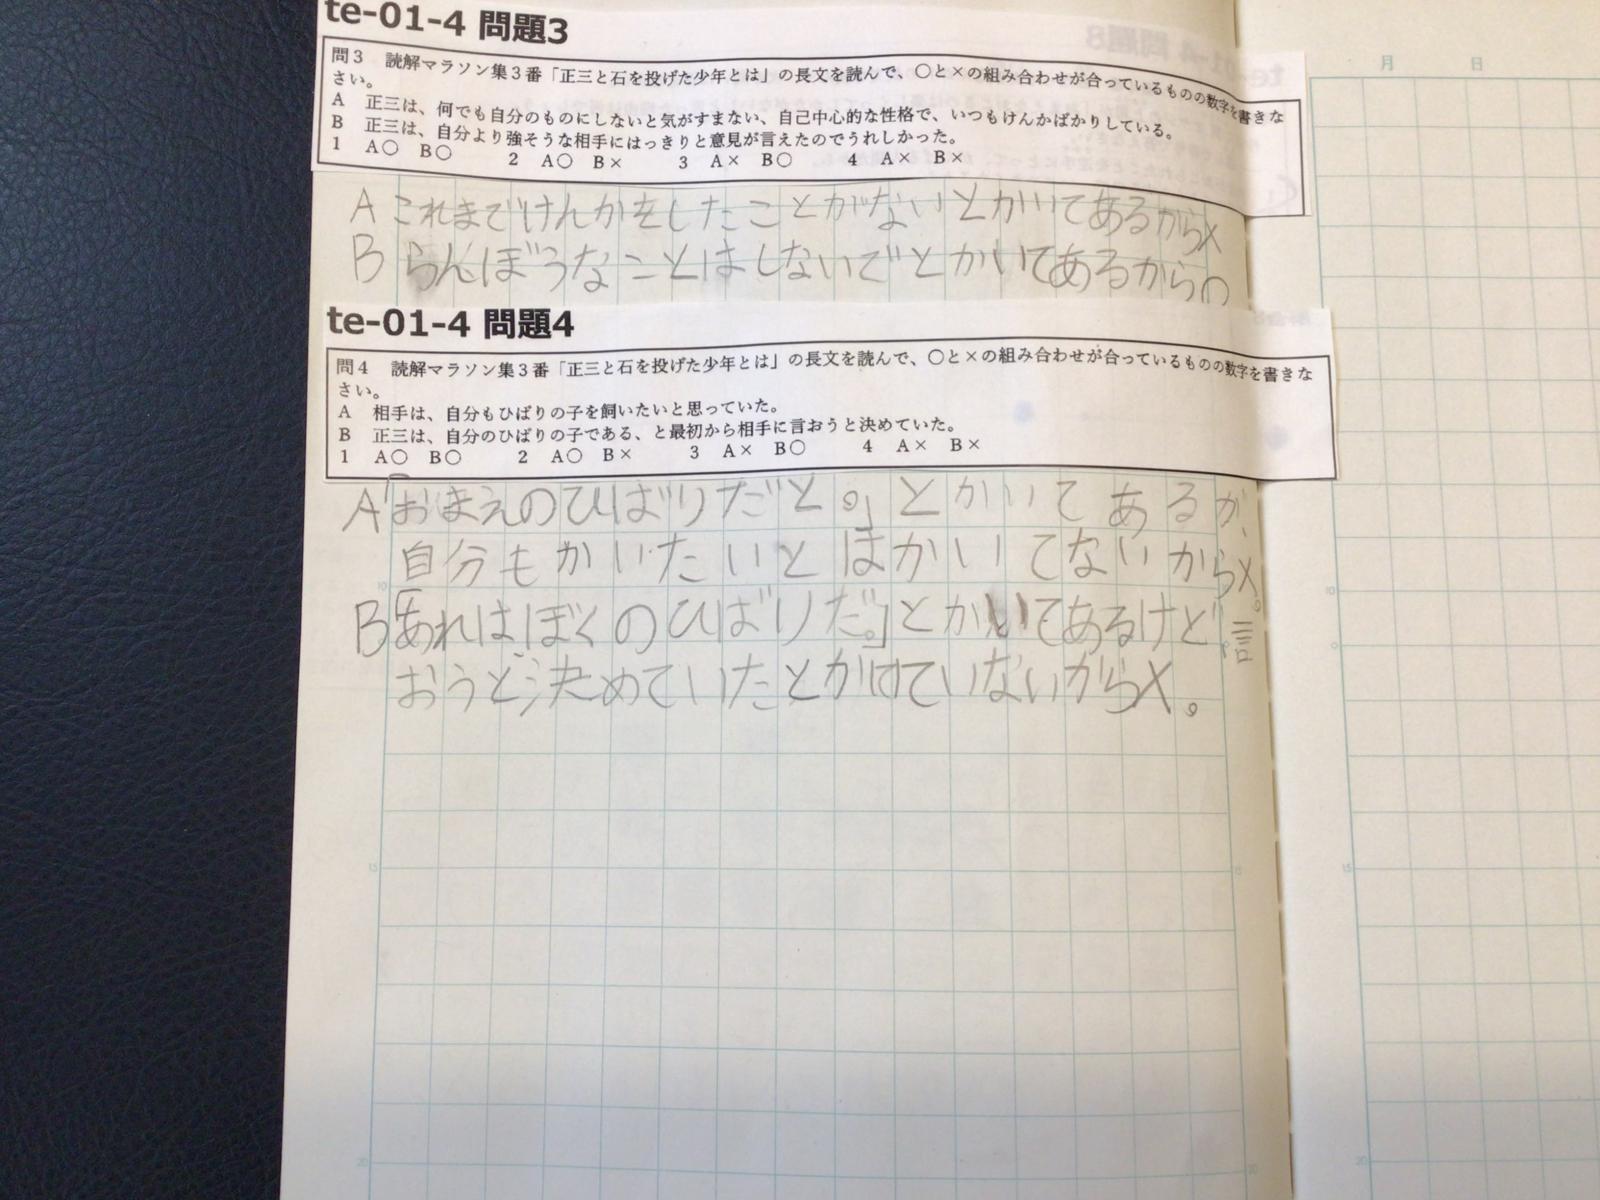 te-01-4 問題3
問3 読解マラソン集3番「正三と石を投げた少年とは」の長文を読んで、○と×の組み合わせが合っているものの数字を書きな
さい。
A 正三は、何でも自分のものにしないと気がすまない、自己中心的な性格で、いつもけんかばかりしている。
B 正三は、自分より強そうな相手にはっきりと意見が言えたのでうれしかった。
1 A○ B○ 2 A○ B× 3 A× B○ 4 A× B×
A これまでけんかをしたことがないとかいてあるからX
B らんぼうなことはしないでとかいてあるから○
te-01-4 問題4
問4 読解マラソン集3番「正三と石を投げた少年とは」の長文を読んで、○と×の組み合わせが合っているものの数字を書きな
さい。
A 相手は、自分もひばりの子を飼いたいと思っていた。
B 正三は、自分のひばりの子である、と最初から相手に言おうと決めていた。
1 A○ B○ 2 A○ B× 3 A× B○ 4 A× B×
A「おまえのひばりだと。」とかいてあるが、
自分もかいたいとはかいてないからX。
B「あれはぼくのひばりだ。」とかいてあるけど。言
おうと決めていたとかけていないからX。
月 日
10
15
20
10
15
20